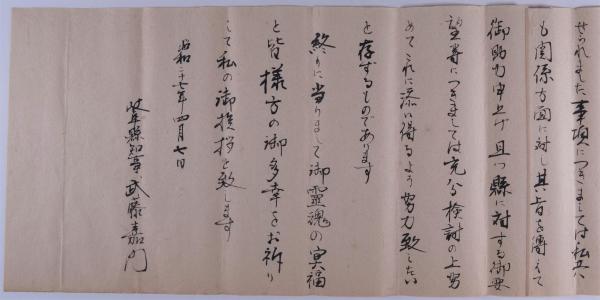 せられました事項につきましては私共
も関係方面に対し其の旨を傳えて
御助力申上げ且つ縣に対する御要
望等につきましては充分検討の上努
めてこれに添い得るよう努力致したい
と存ずるものであります
終りに当りまして御霊魂の冥福
と皆様方の御多幸をお祈り
して私の御挨拶と致します
昭和二十七年四月七日
岐阜縣知事 武藤嘉門